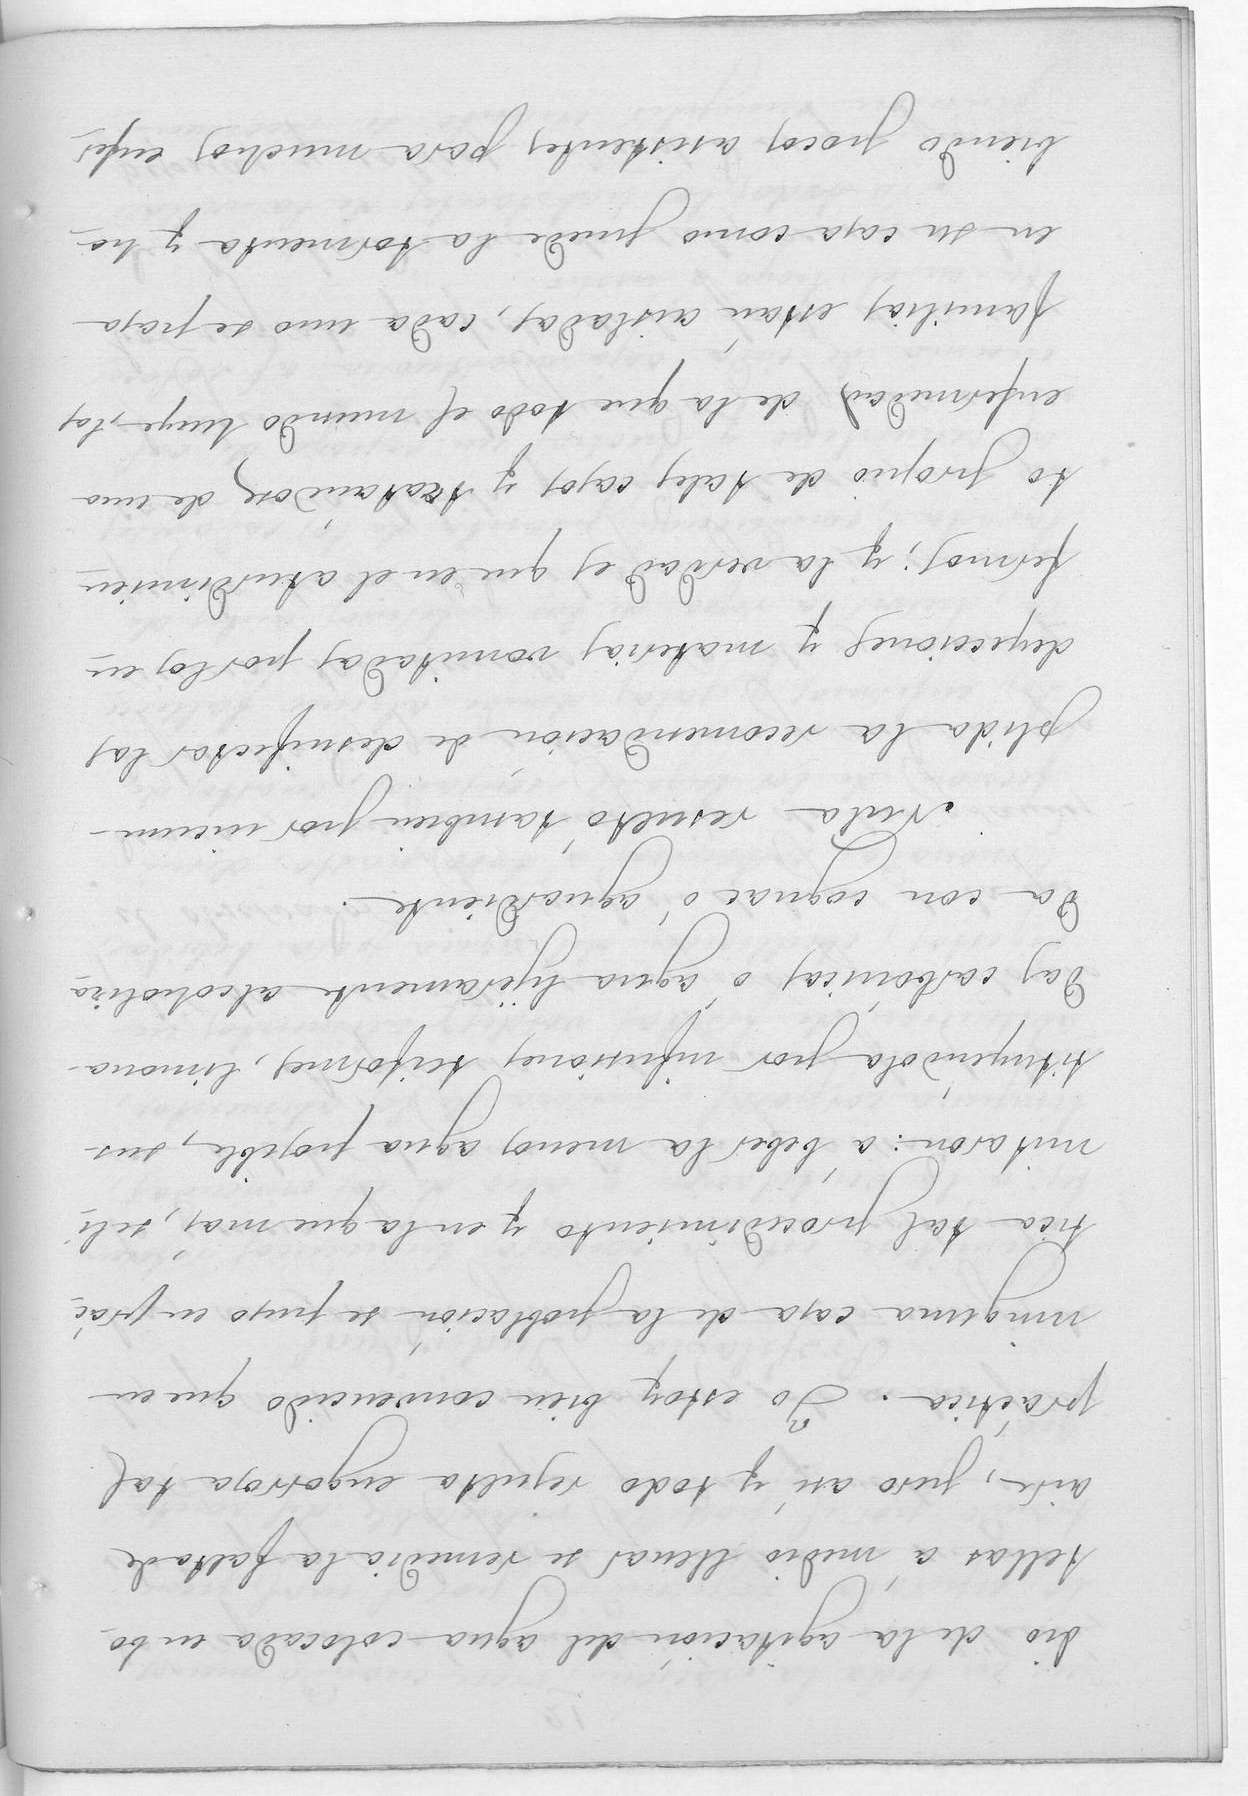 dio de la agitación del agua colocada en bo-
tellas á medio llenar se remedia la falta de
aire, pero así y todo resulta engorrosa tal
práctica. Yo estoy bien convencido que en
ninguna casa de la población se puso en prác-
tica tal procedimiento y en la que mas, se li-
mitaron: á beber la menos agua posible, sus-
tituyéndola por infusiones teiformes, limona-
das carbónicas ó agua lijeramente alcoholiza-
da con cognac ó aguardiente.
Nula resultó tambien por incum-
plida la recomendación de desinfectar las
deyecciones y materias vomitadas por los en-
fermos; y la verdad es que en el aturdimien-
to propio de tales casos y tratándose de una
enfermedad de la que todo el mundo huye, las
familias están aisladas, cada uno se pasa
en su casa como puede la tormenta y ha-
biendo pocos asistentes para muchos enfer-